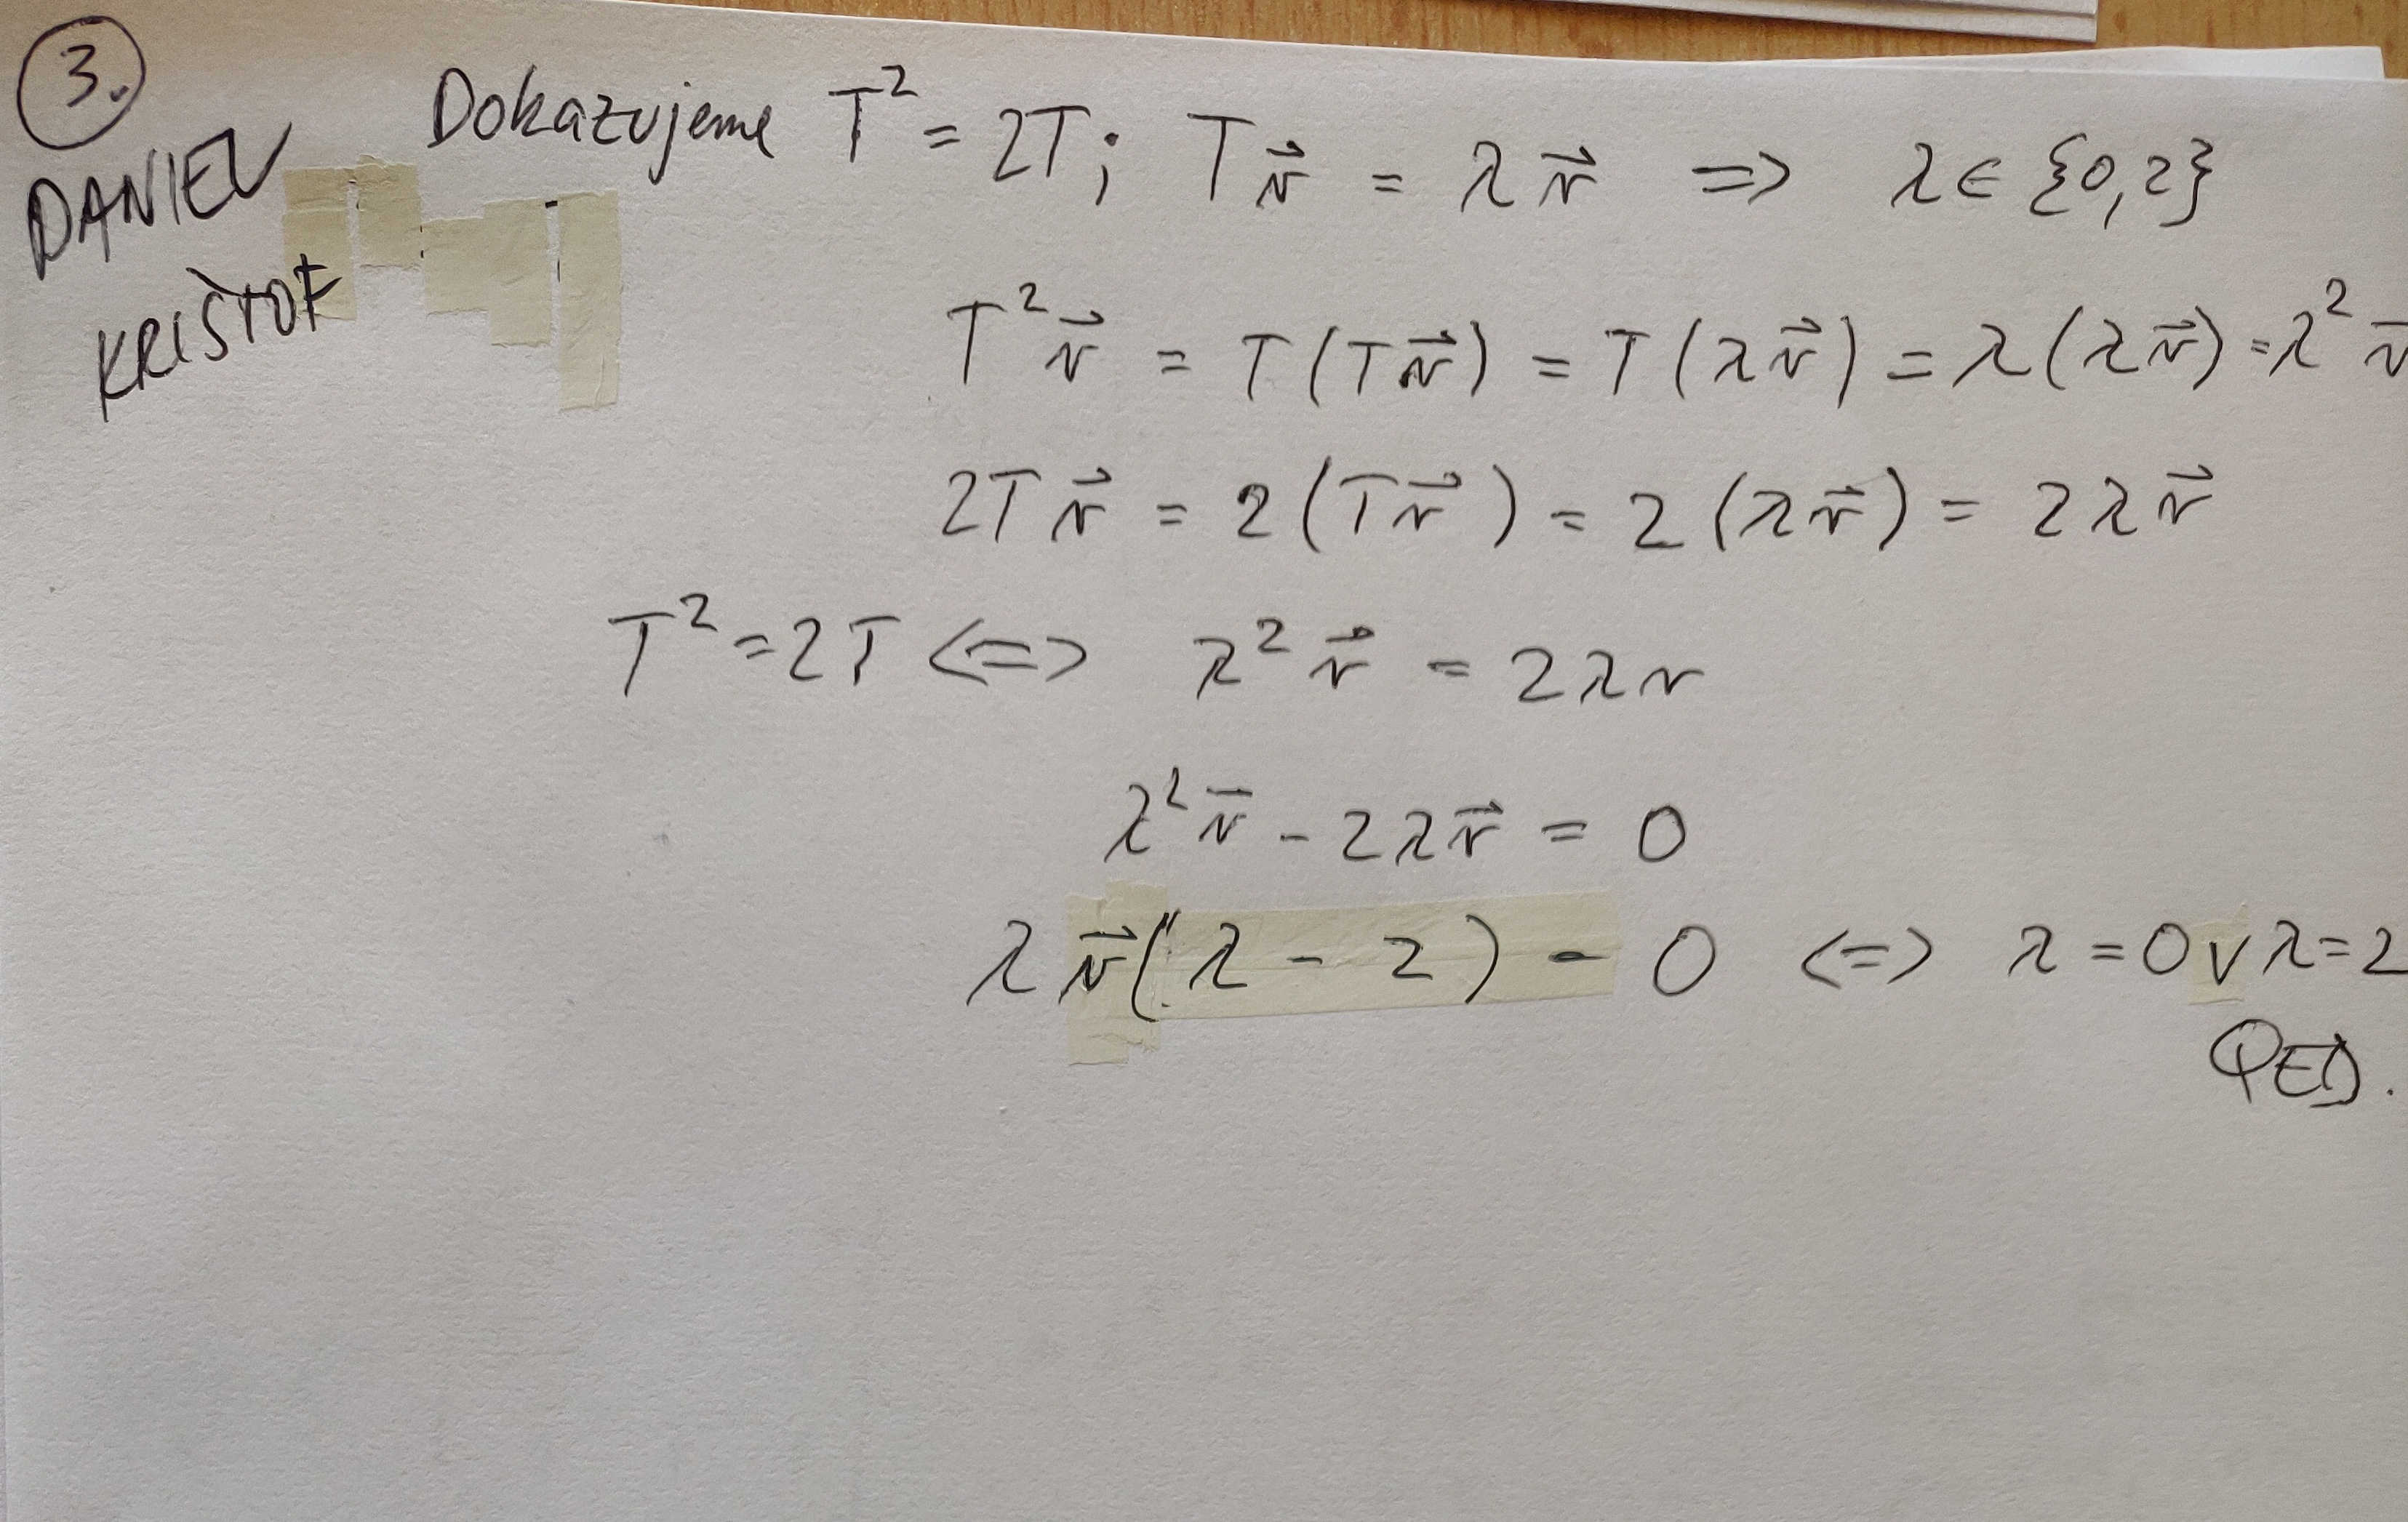 3.
DANIEL
KRIŠTOF
Dokazujeme T² = 2T; Tv⃗ = λv⃗ => λ∈{0,2}
T²v⃗ = T(Tv⃗) = T(λv⃗) = λ(λv⃗) = λ²v⃗
2Tv⃗ = 2(Tv⃗) = 2(λv⃗) = 2λv⃗
T² = 2T <=> λ²v⃗ = 2λv
λ²v⃗ - 2λv⃗ = 0
λv⃗(λ - 2) - 0 <=> λ = 0 v λ = 2
QED.